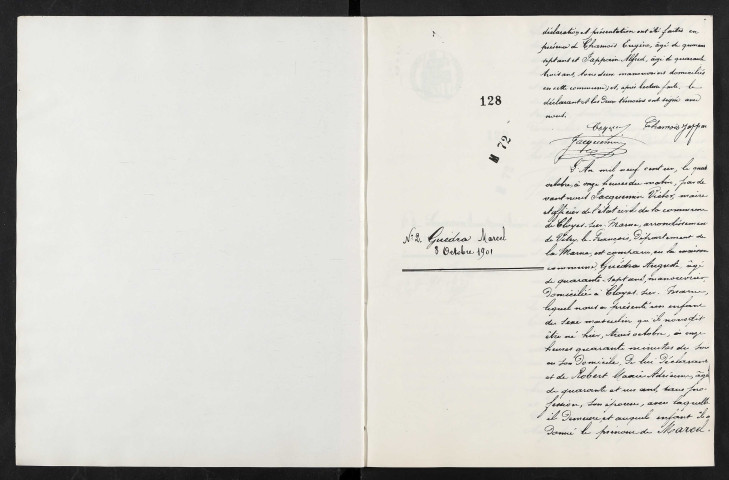 128
M 72
N° 2. Guédra Marcel
3 Octobre 1901
déclaration et présentation ont été faites en
présence de Chamois Eugène, âgé de quarante
sept ans et Jappain Alfred, âgé de quarante
trois ans, tous deux manouvriers domiciliés
en cette commune; et, après lecture faite, le
déclarant et les deux témoins ont signé avec
nous.
Chamois Jappain
Jacquemin
L'An mil neuf cent un, le quatre
octobre, à onze heures du matin, par de
vant nous Jacquemin Victor, maire
et officier de l'état civil de la commune
de Cloyes-sur-Marne, arrondissement
de Vitry-le-François, Département de
la Marne, est comparu, en la maison
commune, Guédra Auguste, âgé
de quarante-sept ans, manouvrier,
domicilié à Cloyes-sur-Marne,
lequel nous a présenté un enfant
du sexe masculin qu'il nous dit
être né hier, trois octobre, à onze
heures quarante minutes du soir
en son domicile, De lui Déclarant
et de Robert Marie Adrienne, âgée
de quarante et un ans, sans pro-
fession, son épouse, avec laquelle
il Demeure et auquel enfant il a
Donné le prénom de Marcel.